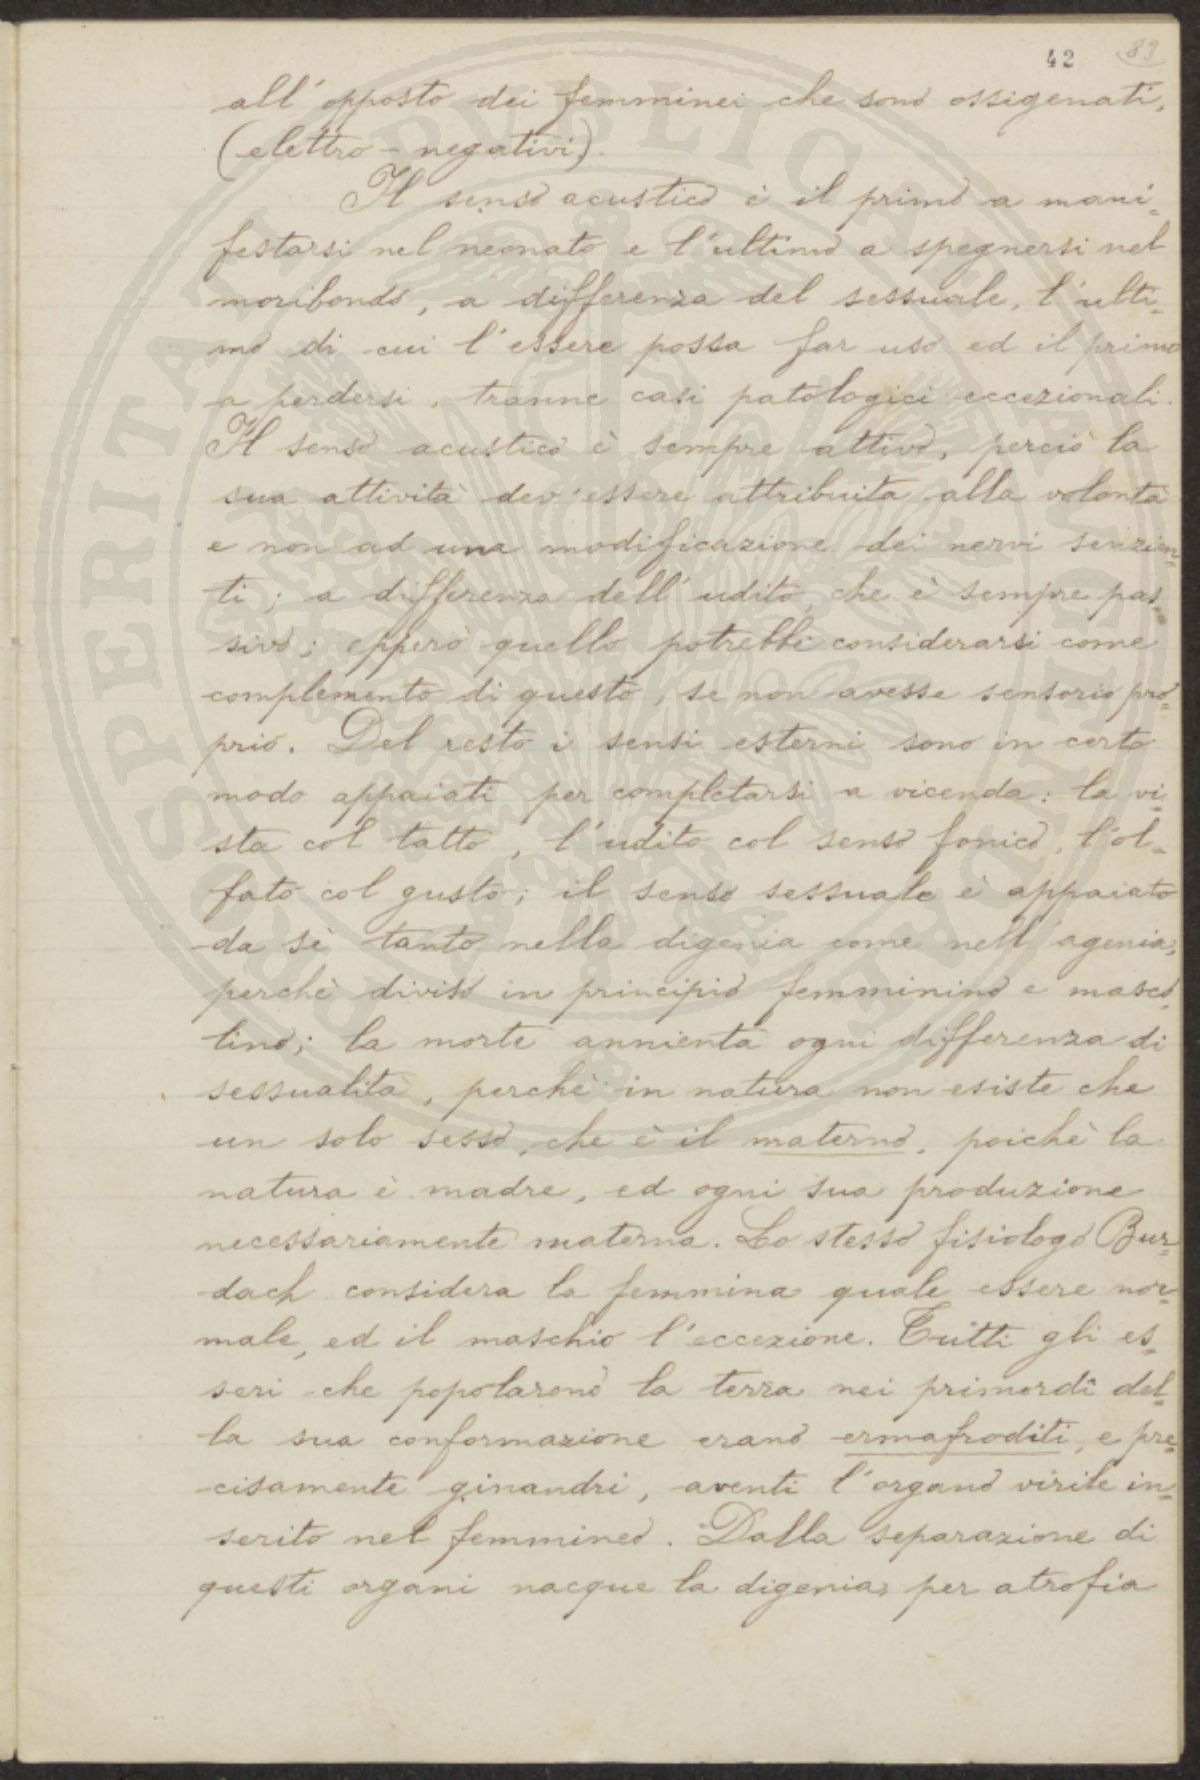 42 83
all'opposto dei femminei che sono ossigenati,
(elettro-negativi).
Il senso acustico è il primo a mani=
festarsi nel neonato e l'ultimo a spegnersi nel
moribondo, a differenza del sessuale, l'ulti=
mo di cui l'essere possa far uso ed il primo
a perdersi, tranne casi patologici eccezionali.
Il senso acustico è sempre attivo, perciò la
sua attività dev'essere attribuita alla volontà
e non ad una modificazione dei nervi senzien=
ti; a differenza dell'udito, che è sempre pas=
sivo; epperò quello potrebbe considerarsi come
complemento di questo, se non avesse sensorio pro=
prio. Del resto i sensi esterni sono in certo
modo appaiati per completarsi a vicenda: la vi=
sta col tatto, l'udito col senso fonico, l'ol=
fato col gusto; il senso sessuale è appaiato
da sè tanto nella digenia come nell'agenia,
perchè diviso in principio femminino e masco=
lino; la morte annienta ogni differenza di
sessualità, perchè in natura non esiste che
un solo sesso, che è il materno, poichè la
natura è madre, ed ogni sua produzione
necessariamente materna. Lo stesso fisiologo Bur=
dach considera la femmina quale essere nor=
male, ed il maschio l'eccezione. Tutti gli es=
seri che popolarono la terra nei primordî del=
la sua conformazione erano ermafroditi, e pre=
cisamente ginandri, aventi l'organo virile in=
serito nel femmineo. Dalla separazione di
questi organi nacque la digenia, per atrofia
PROSPERITATI PUBLICAE AUGENDAE